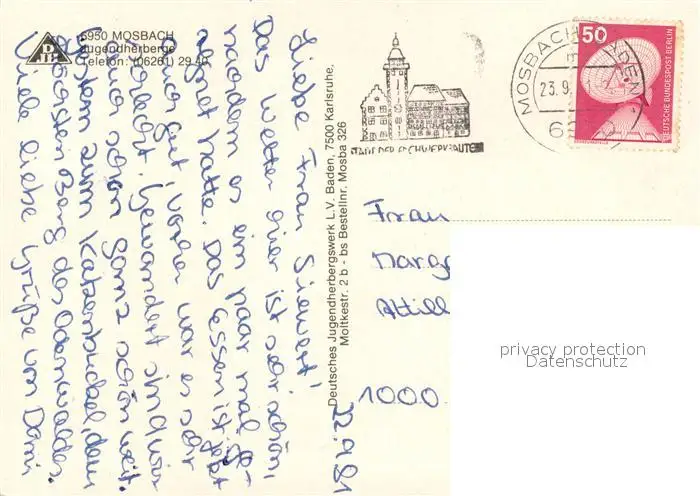 6950 MOSBACH
Jugendherberge
Telefon: (06261) 29 40
DJH
Liebe Frau Siewert!
Das Wetter hier ist sehr schön,
nachdem es ein paar mal ge-
regnet hatte. Das Essen ist jetzt
ganz gut, vorher war es sehr
Gewandert sind wir
auch schon ganz schön weit.
Gestern zum Katzenbuckel, dem
grössten Berg des Odenwaldes.
Viele liebe Grüße von Dani
22.9.81
Deutsches Jugendherbergswerk L.V. Baden, 7500 Karlsruhe,
Moltkestr. 2 b - bs Bestellnr. Mosba 326
STADT DER FACHWERKBAUTEN
MOSBACH
23.9.
50
DEUTSCHE BUNDESPOST BERLIN
Frau
Marg
Attill
1000
privacy protection
Datenschutz